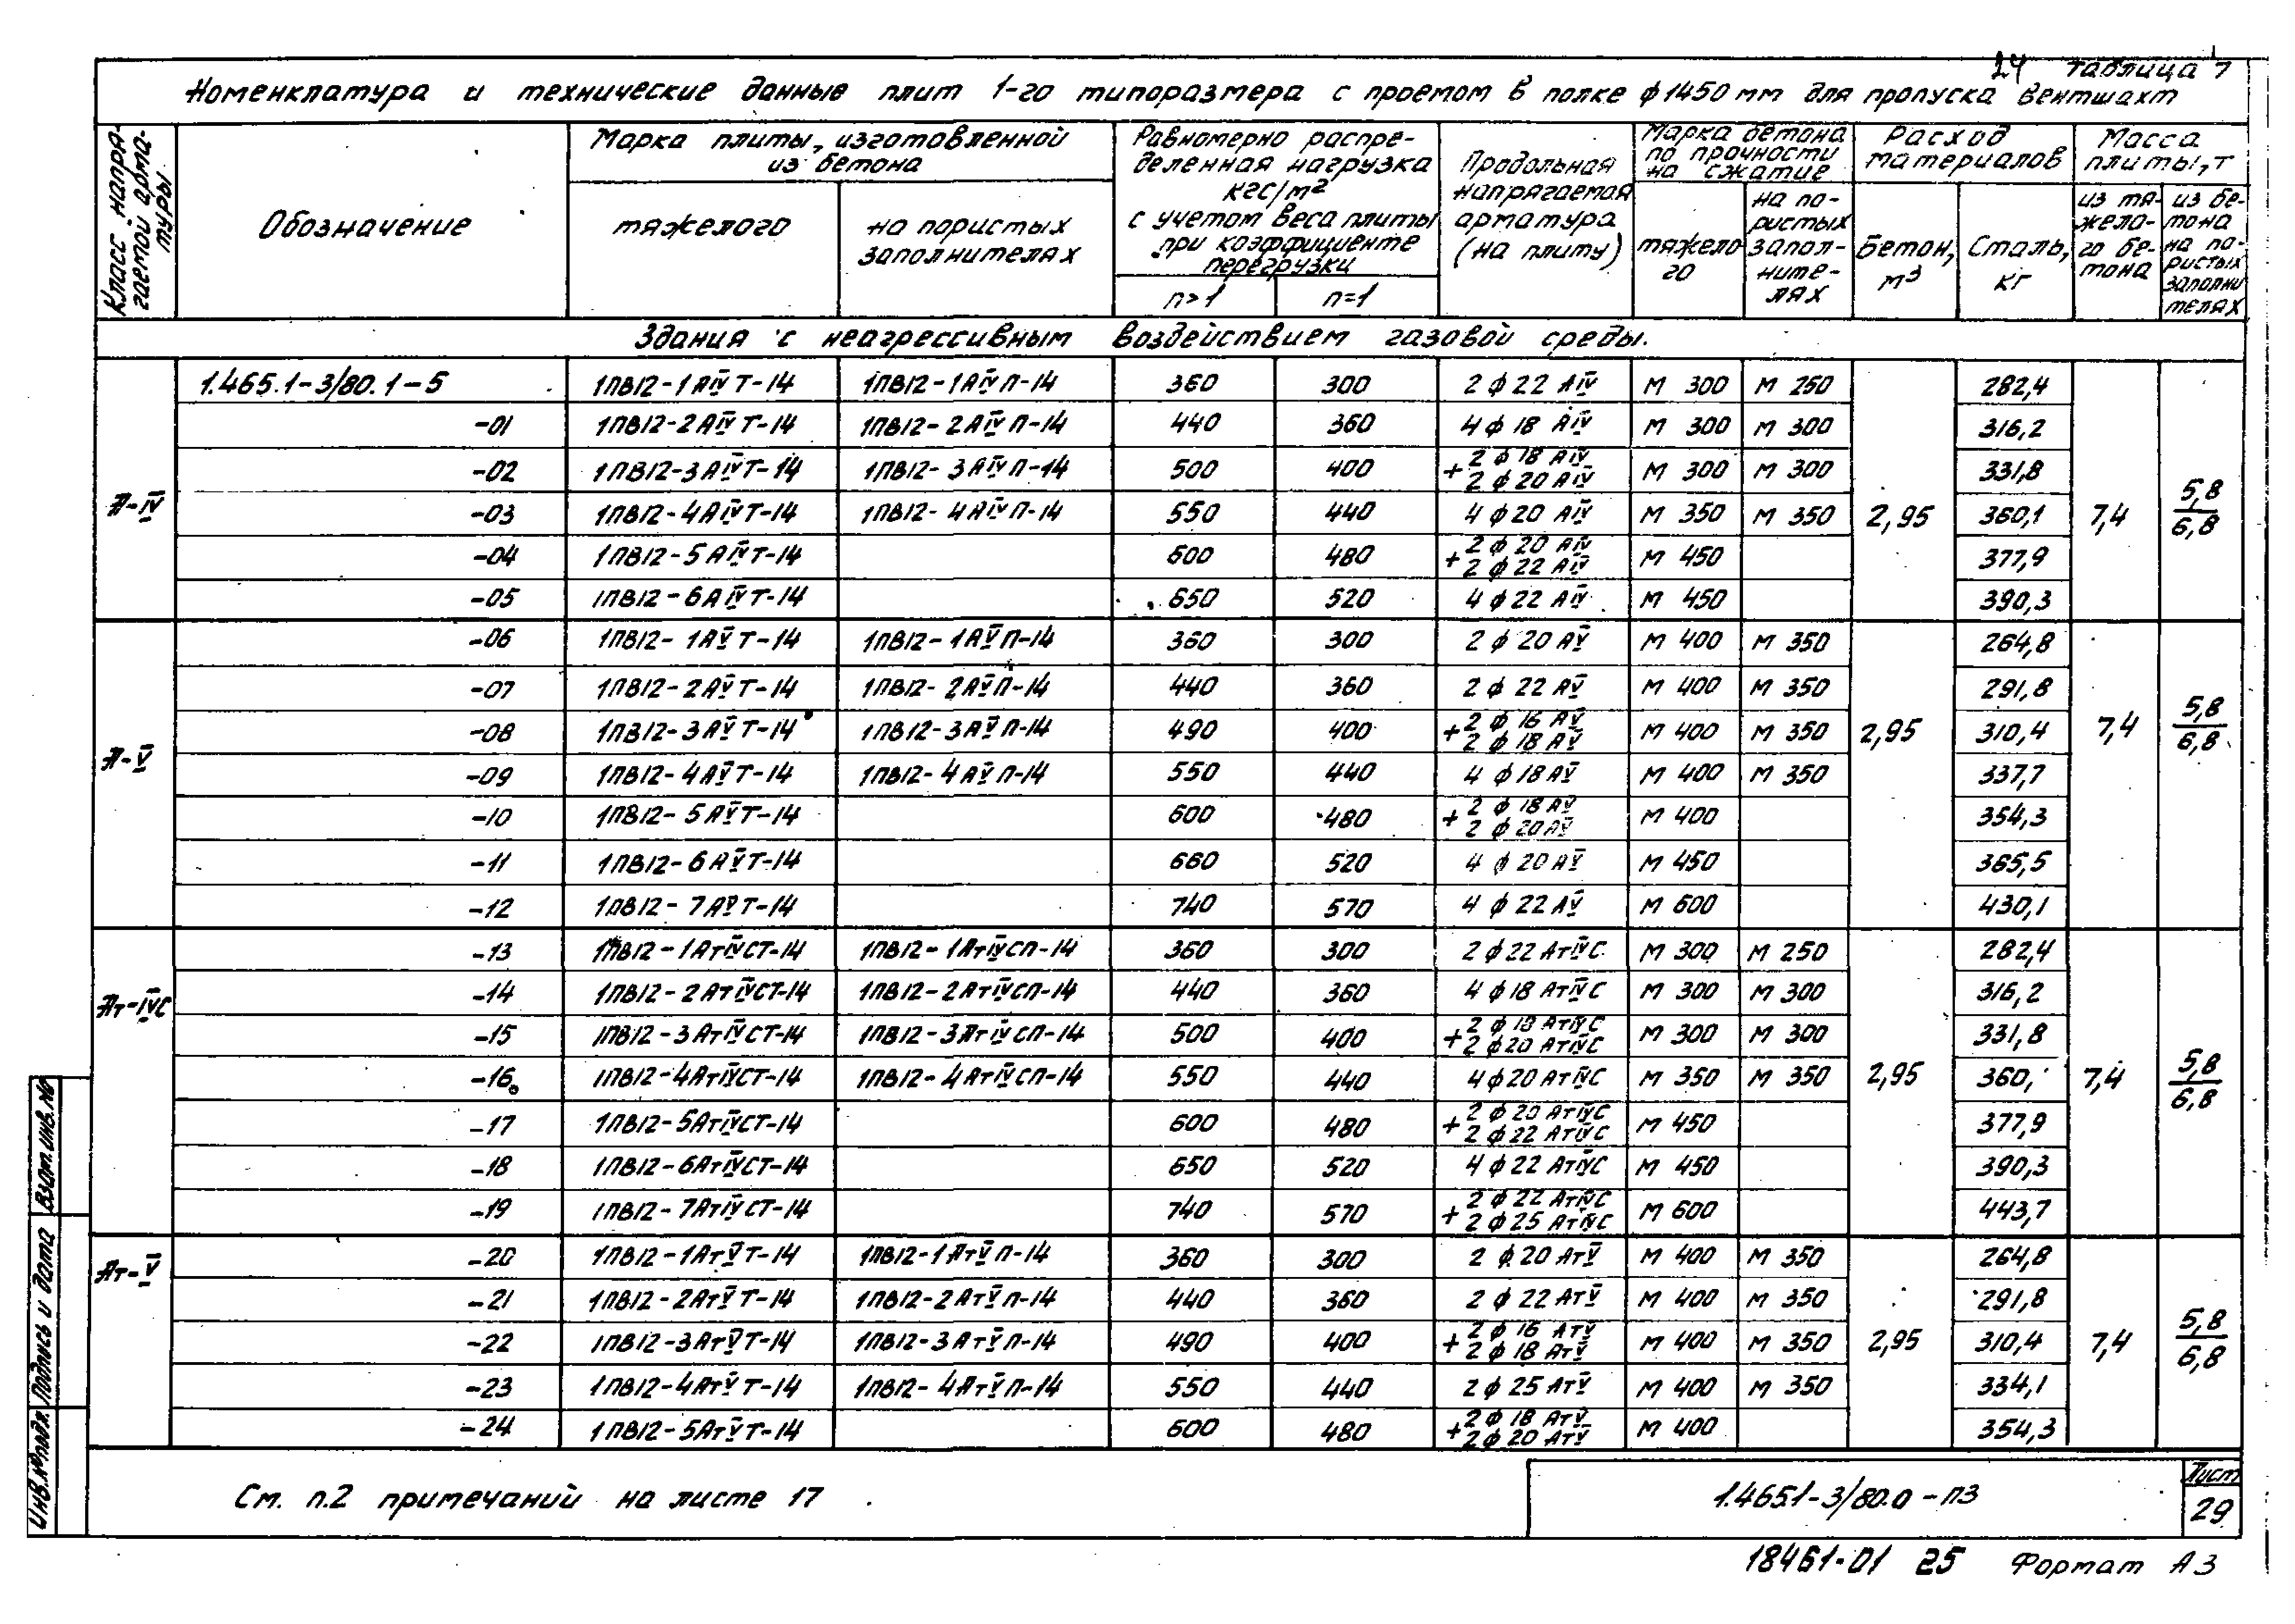 24 таблица 7
Номенклатура и технические данные плит 1-го типоразмера с проемом в полке ф1450 мм для пропуска вентшахт
Класс напрягаемой арматуры | Обозначение | Марка плиты, изготовленной из бетона | Равномерно распределенная нагрузка кгс/м² с учетом веса плиты при коэффициенте перегрузки | Продольная напрягаемая арматура (на плиту) | Марка бетона по прочности на сжатие | Расход материалов | Масса плиты, т
тяжелого | на пористых заполнителях | n>1 | n=1 | тяжелого | на пористых заполнителях | Бетон, м³ | Сталь, кг | из тяжелого бетона | из бетона на пористых заполнителях
Здания с неагрессивным воздействием газовой среды.
А-IV | 2,95 | 7,4 | 5,8/6,8
1.465.1-3/80.1-5 | 1ПВ12-1АIVТ-14 | 1ПВ12-1АIVП-14 | 360 | 300 | 2ф22 АIV | М 300 | М 250 | 282,4
-01 | 1ПВ12-2АIVТ-14 | 1ПВ12-2АIVП-14 | 440 | 360 | 4ф18 АIV | М 300 | М 300 | 316,2
-02 | 1ПВ12-3АIVТ-14 | 1ПВ12-3АIVП-14 | 500 | 400 | 2ф18 АIV + 2ф20 АIV | М 300 | М 300 | 331,8
-03 | 1ПВ12-4АIVТ-14 | 1ПВ12-4АIVП-14 | 550 | 440 | 4ф20 АIV | М 350 | М 350 | 360,1
-04 | 1ПВ12-5АIVТ-14 | 600 | 480 | 2ф20 АIV + 2ф22 АIV | М 450 | 377,9
-05 | 1ПВ12-6АIVТ-14 | 650 | 520 | 4ф22 АIV | М 450 | 390,3
А-V | 2,95 | 7,4 | 5,8/6,8
-06 | 1ПВ12-1АVТ-14 | 1ПВ12-1АVП-14 | 360 | 300 | 2ф20 АV | М 400 | М 350 | 264,8
-07 | 1ПВ12-2АVТ-14 | 1ПВ12-2АVП-14 | 440 | 360 | 2ф22 АV | М 400 | М 350 | 291,8
-08 | 1ПВ12-3АVТ-14 | 1ПВ12-3АVП-14 | 490 | 400 | 2ф16 АV + 2ф18 АV | М 400 | М 350 | 310,4
-09 | 1ПВ12-4АVТ-14 | 1ПВ12-4АVП-14 | 550 | 440 | 4ф18 АV | М 400 | М 350 | 337,7
-10 | 1ПВ12-5АVТ-14 | 600 | 480 | 2ф18 АV + 2ф20 АV | М 400 | 354,3
-11 | 1ПВ12-6АVТ-14 | 660 | 520 | 4ф20 АV | М 450 | 365,5
-12 | 1ПВ12-7АVТ-14 | 740 | 570 | 4ф22 АV | М 600 | 430,1
Ат-IVС | 2,95 | 7,4 | 5,8/6,8
-13 | 1ПВ12-1АтIVСТ-14 | 1ПВ12-1АтIVСП-14 | 360 | 300 | 2ф22 АтIVС | М 300 | М 250 | 282,4
-14 | 1ПВ12-2АтIVСТ-14 | 1ПВ12-2АтIVСП-14 | 440 | 360 | 4ф18 АтIVС | М 300 | М 300 | 316,2
-15 | 1ПВ12-3АтIVСТ-14 | 1ПВ12-3АтIVСП-14 | 500 | 400 | 2ф18 АтIVС + 2ф20 АтIVС | М 300 | М 300 | 331,8
-16 | 1ПВ12-4АтIVСТ-14 | 1ПВ12-4АтIVСП-14 | 550 | 440 | 4ф20 АтIVС | М 350 | М 350 | 360,
-17 | 1ПВ12-5АтIVСТ-14 | 600 | 480 | 2ф20 АтIVС + 2ф22 АтIVС | М 450 | 377,9
-18 | 1ПВ12-6АтIVСТ-14 | 650 | 520 | 4ф22 АтIVС | М 450 | 390,3
-19 | 1ПВ12-7АтIVСТ-14 | 740 | 570 | 2ф22 АтIVС + 2ф25 АтIVС | М 600 | 443,7
Ат-V | 2,95 | 7,4 | 5,8/6,8
-20 | 1ПВ12-1АтVТ-14 | 1ПВ12-1АтVП-14 | 360 | 300 | 2ф20 АтV | М 400 | М 350 | 264,8
-21 | 1ПВ12-2АтVТ-14 | 1ПВ12-2АтVП-14 | 440 | 360 | 2ф22 АтV | М 400 | М 350 | 291,8
-22 | 1ПВ12-3АтVТ-14 | 1ПВ12-3АтVП-14 | 490 | 400 | 2ф16 АтV + 2ф18 АтV | М 400 | М 350 | 310,4
-23 | 1ПВ12-4АтVТ-14 | 1ПВ12-4АтVП-14 | 550 | 440 | 2ф25 АтV | М 400 | М 350 | 334,1
-24 | 1ПВ12-5АтVТ-14 | 600 | 480 | 2ф18 АтV + 2ф20 АтV | М 400 | 354,3
См. п.2 примечаний на листе 17
1.465.1-3/80.0-ПЗ
Лист
29
18461-01 25 Формат А3
Инв.№подл. Подпись и дата Взам.инв.№